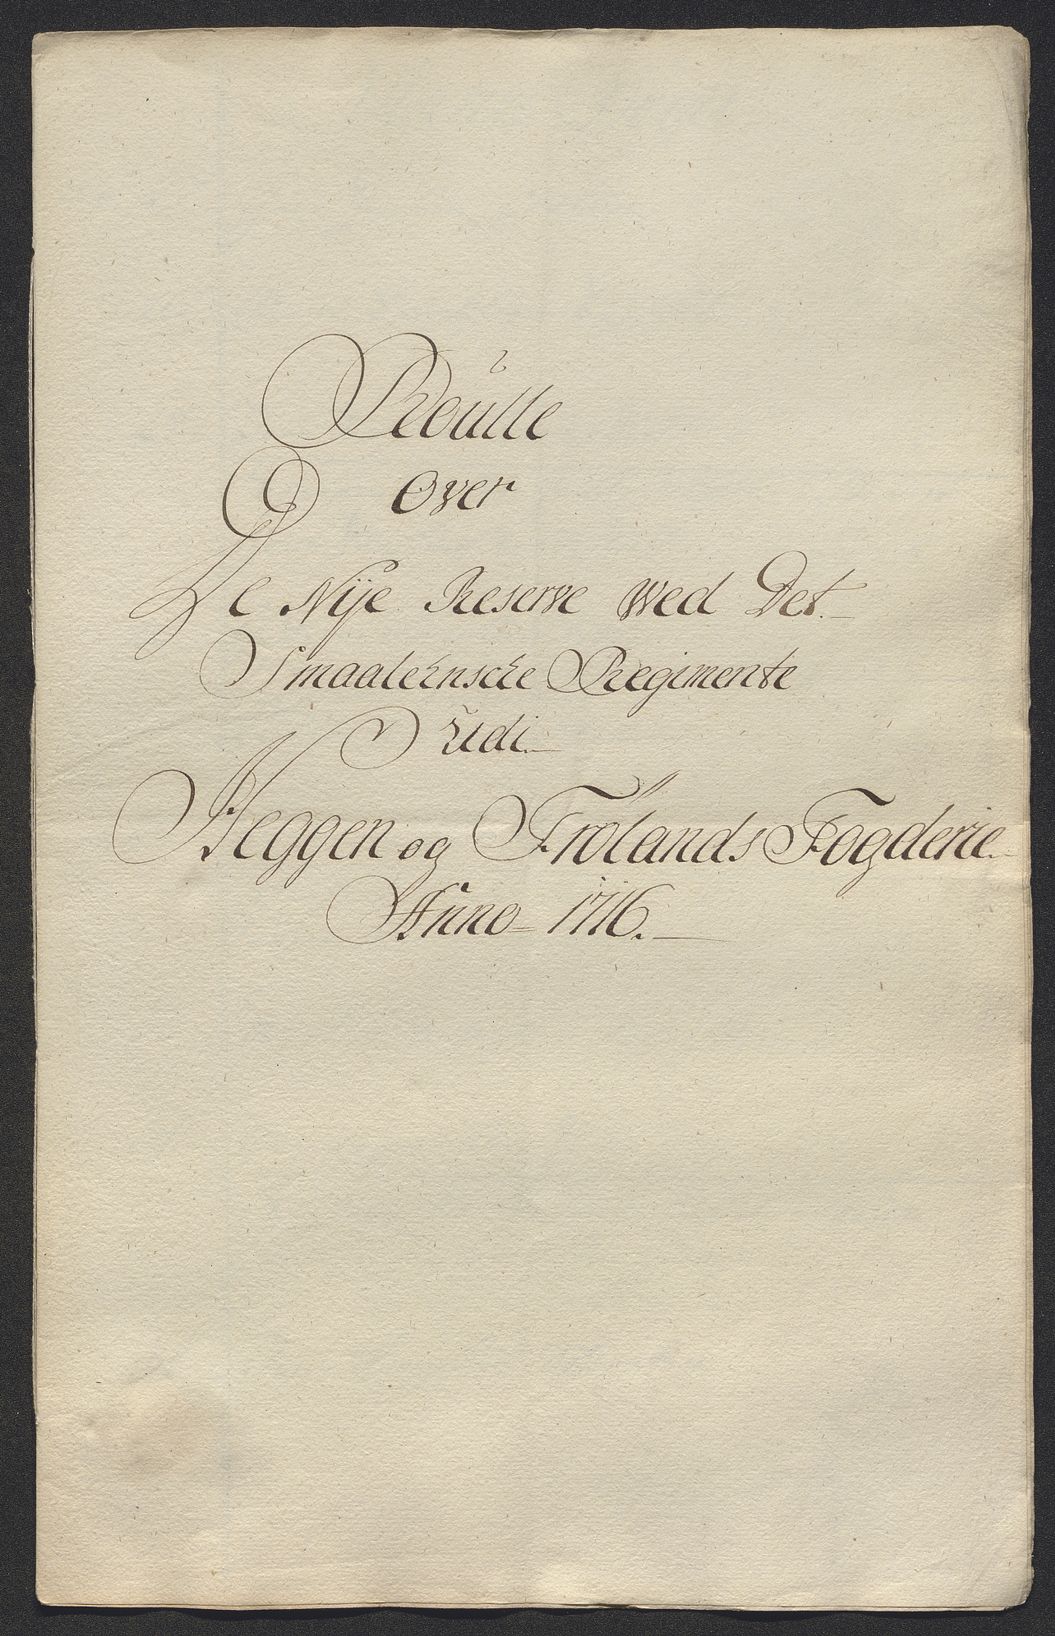 Roulle
Over
De Nÿe Reserve Wed Det
Smaalehnsche Regimente
Udi
Heggen og Frølands Fogderie
Anno 1716.